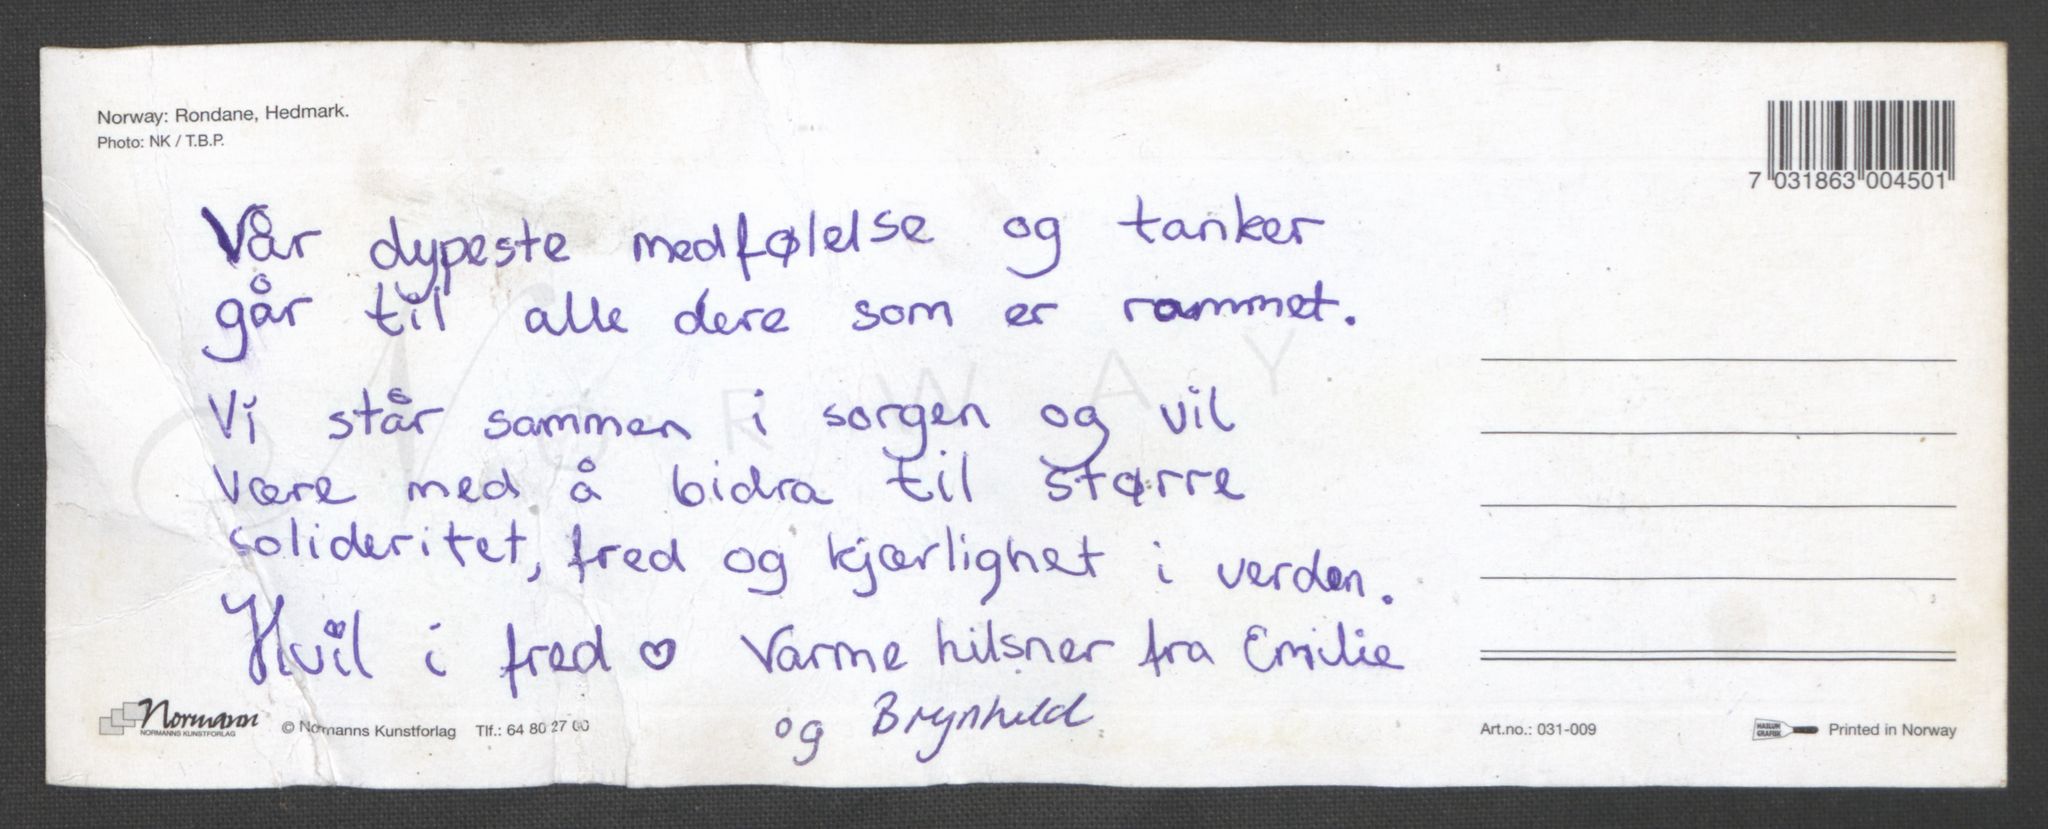 Norway: Rondane, Hedmark.
Photo: NK / T.B.P.
7 031863 004501
Vår dypeste medfølelse og tanker
går til alle dere som er rammet.
Vi står sammen i sorgen og vil
være med å bidra til større
solideritet, fred og kjærlighet i verden.
Hvil i fred ♥ Varme hilsner fra Emilie
og Brynhild
NORWAY
Normann
NORMANNS KUNSTFORLAG
© Normanns Kunstforlag Tlf.: 64 80 27 00
Art.no.: 031-009
HASLUM GRAFISK
Printed in Norway